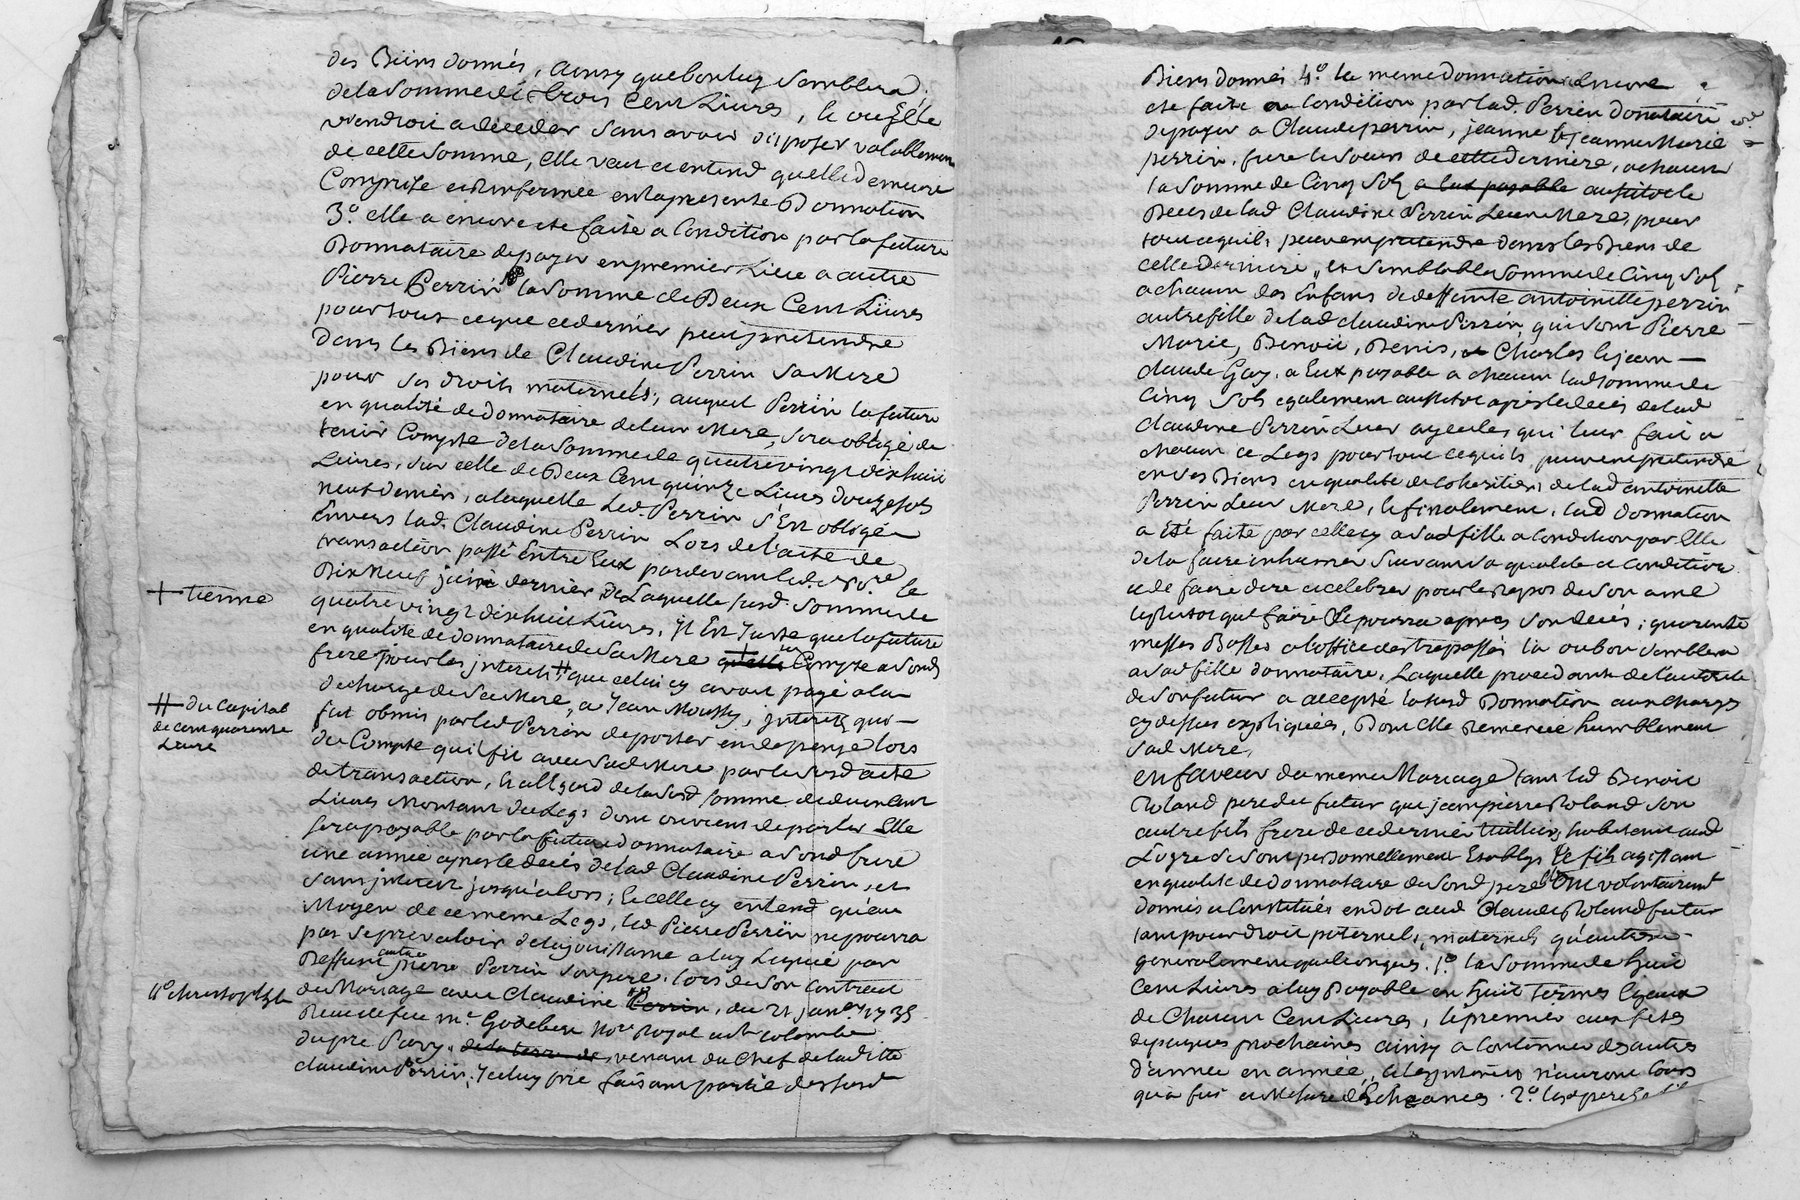 des Biens donnés, ainsy que bon luy semblera
de la somme de trois Cent Livres, le ou Elle
viendroit a deceder sans avoir disposer valablement
de cette somme, elle veut et entend quelle demeure
Comprise et renfermée en la presente Donnation
3.o elle a encore ete faite a Condition par la future
Donnataire de payer en premier Lieu a autre
Pierre Perrin la somme de Deux Cent Livres
pour tout ce que ce dernier peut pretendre
dans les Biens de Claudine Perrin sa Mere
pour ses droits maternels, auquel Perrin la future
en qualité de donnataire de leur Mere, sera obligé de
tenir Compte de la somme de quatre vingt dix huit
Livres, sur celle de Deux Cent quinze Livres douze sols
neuf deniers, a laquelle Led. Perrin s'Est obligé
Envers lad. Claudine Perrin Lors de l'acte de
transaction passé Entre Eux pardevant led. no.re le
Dix Neuf juin dernier, de Laquelle susd. somme de
+ tienne
quatre vingt dix huit Livres, Il Est Juste que la future
en qualité de donnataire de sa Mere qu'elle Compte a sond
frere pour les interets # que celui cy avoit payé a la
decharge de sa Mere, a Jean Moussy, interets qui
# du Capital
de cent quarente
Livre
fut obmis par led Perrin de porter en depense lors
du Compte qu'il fit avec sad. Mere par le susd acte
de transaction, a l'Egard de la susd somme de deux cent
Livres Montant du Legs dont on vient de parler Elle
sera payable par la future donnataire a sond frere
une année apres le decés de lad Claudine Perrin, et
sans interet jusqu'alors; Et celle cy entend qu'au
Moyen de ce meme Legs, led Pierre Perrin ne pourra
pas se prevaloir de la jouissance a luy Leguée par
Deffunt autre pierre Perrin son pere, lors de son contract
de Mariage avec Claudine Perrin, du 21 janv.er 1735
d.e christophle
Receu de feu m.e Godebert No.re Royal
du pre Pavy, de la terre de, venant du Chef de ladite
claudine Perrin, Iceluy pré faisant partie des susd
Biens donnés 4.o la meme donnation a Encore
ete faite a Condition par lad. Perrin donataire
de payer a Claude perrin, jeanne Et jeanne Marie
perrin, frere Et soeurs de cette derniere, a chacun
la somme de Cinq Sols a Eux payable aussitot le
Deces de lad Claudine Perrin Leur Mere, pour
tout ce quils peuvent pretendre dans les Biens de
cette derniere, et semblable somme de Cinq sols
a chacun des Enfans de deffunte antoinette perrin
autre fille de lad claudine Perrin, qui sont Pierre
Marie, Benoit, Denis, et Charles Et jean
claude Gay, a Eux payable a chacun lad somme de
Cinq Sols egalement aussitot apres le decés de lad
claudine Perrin Leur ayeule, qui leur fait a
chacun ce Legs pour tout ce quils peuvent pretendre
en ses Biens en qualité de coheritiers de lad antoinette
Perrin Leur Mere, Et finalement, lad Donnation
a Eté faite par celle cy a sad fille a Condition par Elle
de la faire inhumer suivant sa qualité et Condition
et de faire dire et celebrer pour le Repos de son ame
le plutot que faire se pourra apres son decés; quarente
messes Basses a l'office des trepassés la ou bon semblera
a sad fille donnataire, Laquelle procedant de l'autorité
de son futur a accepté la susd Donnation aux charges
cy dessus expliquées, Dont Elle Remercie humblement
sad Mere,
en faveur du meme Mariage tant led Benoit
Roland pere du futur que jean pierre Roland son
autre fils frere de ce dernier habitant aud
Et personnellement Establys Et le fils agissant
en qualité de donnataire de sond pere Ont volontairement
donnés et Constitués en dot aud Claude Roland futur
tant pour droit paternels, maternels qu'autres
generalement quelconques. 1.o la somme de huit
Cent Livres a luy Payable en huit Termes Egaux
de Chacun Cent Livres, le premier aux fetes
de paques prochaines ainsy a continuer des autres
d'année en année, et les interets n'auront cours
qu'a fur et Mesure des Echeances. 2.o led pere Et fils